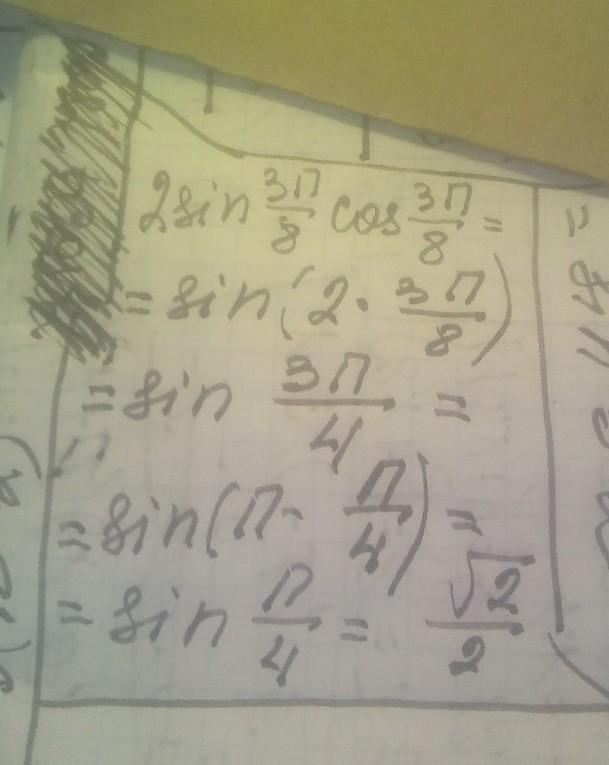 2sin 3π/8 cos 3π/8 =
= sin(2· 3π/8)
= sin 3π/4 =
= sin(π- π/4) =
= sin π/4 = √2/2